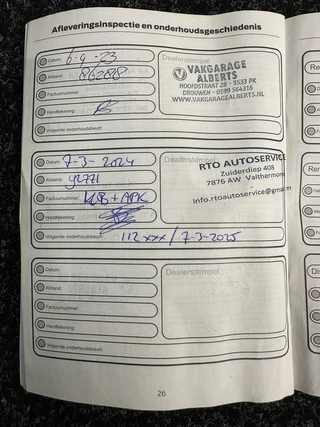 Afleveringsinspectie en onderhoudsgeschiedenis
Datum: 6-9-23
Afstand:
Factuurnummer:
Handtekening:
Volgende onderhoudsbeurt:
Dealerstempel
VAKGARAGE
ALBERTS
HOOFDSTRAAT 28 - 9533 PK
DROUWEN - 0599 564316
WWW.VAKGARAGEALBERTS.NL
Datum: 7-3-2024
Afstand:
Factuurnummer: KLB + APK
Handtekening:
Volgende onderhoudsbeurt: 112xxx / 7-3-2025
Dealerstempel
RTO AUTOSERVICE
Zuiderdiep 408
7876 AW Valthermond
info.rtoautoservice@gmail
Datum:
Afstand:
Factuurnummer:
Handtekening:
Volgende onderhoudsbeurt:
Dealerstempel
26